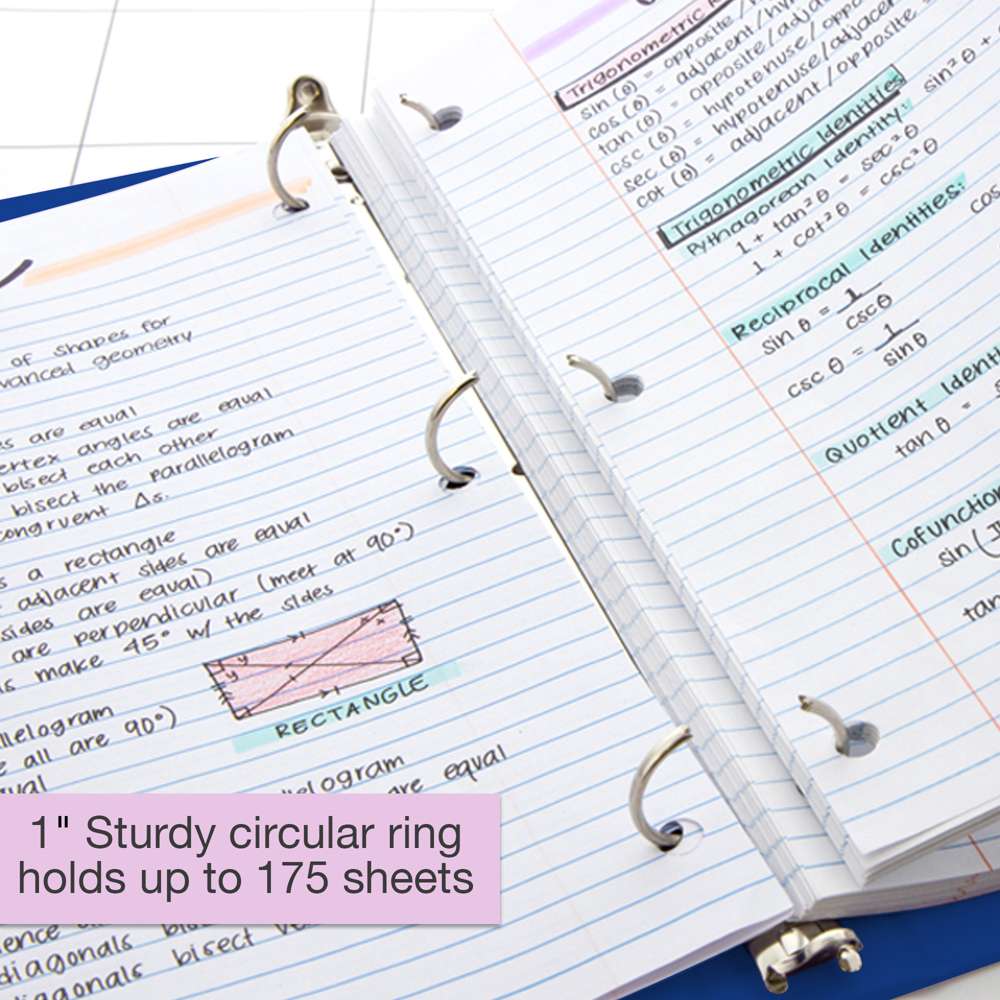 of shapes for
vanced geometry
are equal
angles are equal
bisect each other
bisect the parallelogram
congruent Δs.
a rectangle
adjacent sides are equal
sides are equal)
are perpendicular (meet at 90°)
make 45° w/ the sides
y
y
x
x
RECTANGLE
all are 90°)
are equal
1" Sturdy circular ring
holds up to 175 sheets
diagonals
diagonals bisect
Trigonometric
sin (θ) = opposite /
cos (θ) = adjacent/hy
tan (θ) = opposite/adja
csc (θ) = hypotenuse/oppo
sec (θ) = hypotenuse/adjacen
cot (θ) = adjacent/opposite
Trigonometric Identities
Pythagorean Identity: sin²θ +
1 + tan²θ = sec²θ
1 + cot²θ = csc²θ
Reciprocal Identities:
sin θ = 1/cscθ
cos
csc θ = 1/sinθ
Quotient Identi
tan θ =
Cofunction
sin (
tan